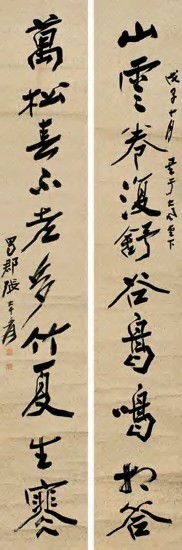 山雲卷復舒谷鳥鳴相答
戊子十月書于大風堂下
萬松春不老多竹夏生寒
蜀郡張大千爰